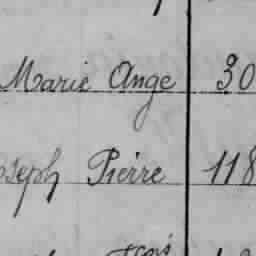 Marie Ange 30
oseph Pierre 118